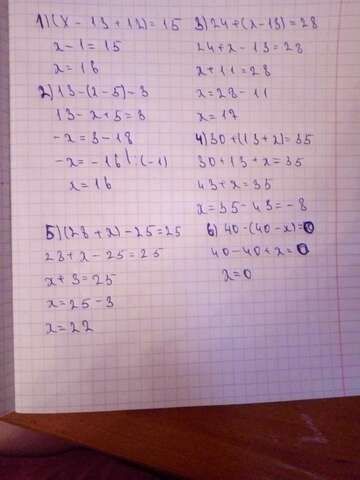 1) (x - 13 + 12) = 15
x - 1 = 15
x = 16
2) 13 - (x - 5) - 3
13 - x + 5 = 3
-x = 3 - 18
-x = -16 | : (-1)
x = 16
3) 24 + (x - 13) = 28
24 + x - 13 = 28
x + 11 = 28
x = 28 - 11
x = 17
4) 30 + (13 + x) = 35
30 + 13 + x = 35
43 + x = 35
x = 35 - 43 = -8
5) (23 + x) - 25 = 25
23 + x - 25 = 25
x + 3 = 25
x = 25 - 3
x = 22
6) 40 - (40 - x) = 0
40 - 40 + x = 0
x = 0